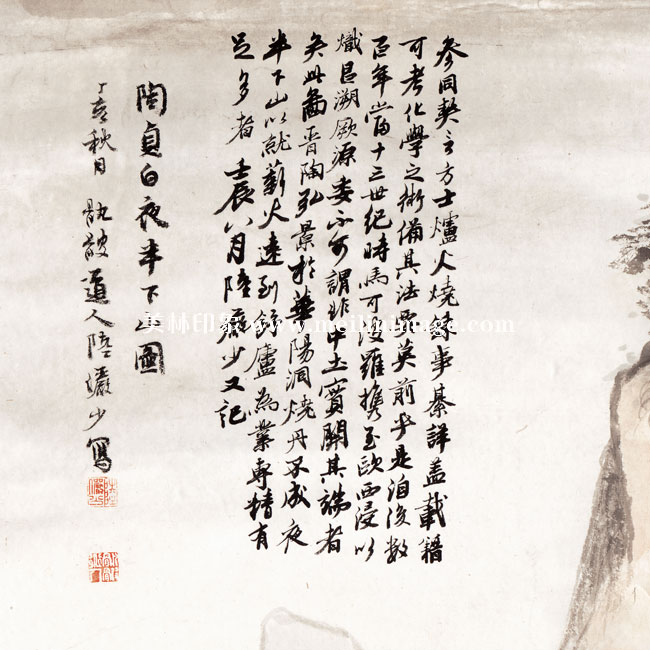 參同契言方士爐火燒鍊事綦詳蓋載籍
可考化學之術備其法莫前乎是洎後數
百年當十三世紀時馬可波羅攜至歐西浸以
熾昌溯厥源委不可謂非中土實開其端者
矣此圖晉陶弘景於華陽洞燒丹不成夜
半下山以就薪火到廬為業專精有
足多者 壬辰八月陸儼少又記
陶貞白夜半下山圖
丁亥秋月 骫骳道人陸儼少寫
美林印象 www.meilinimage.com